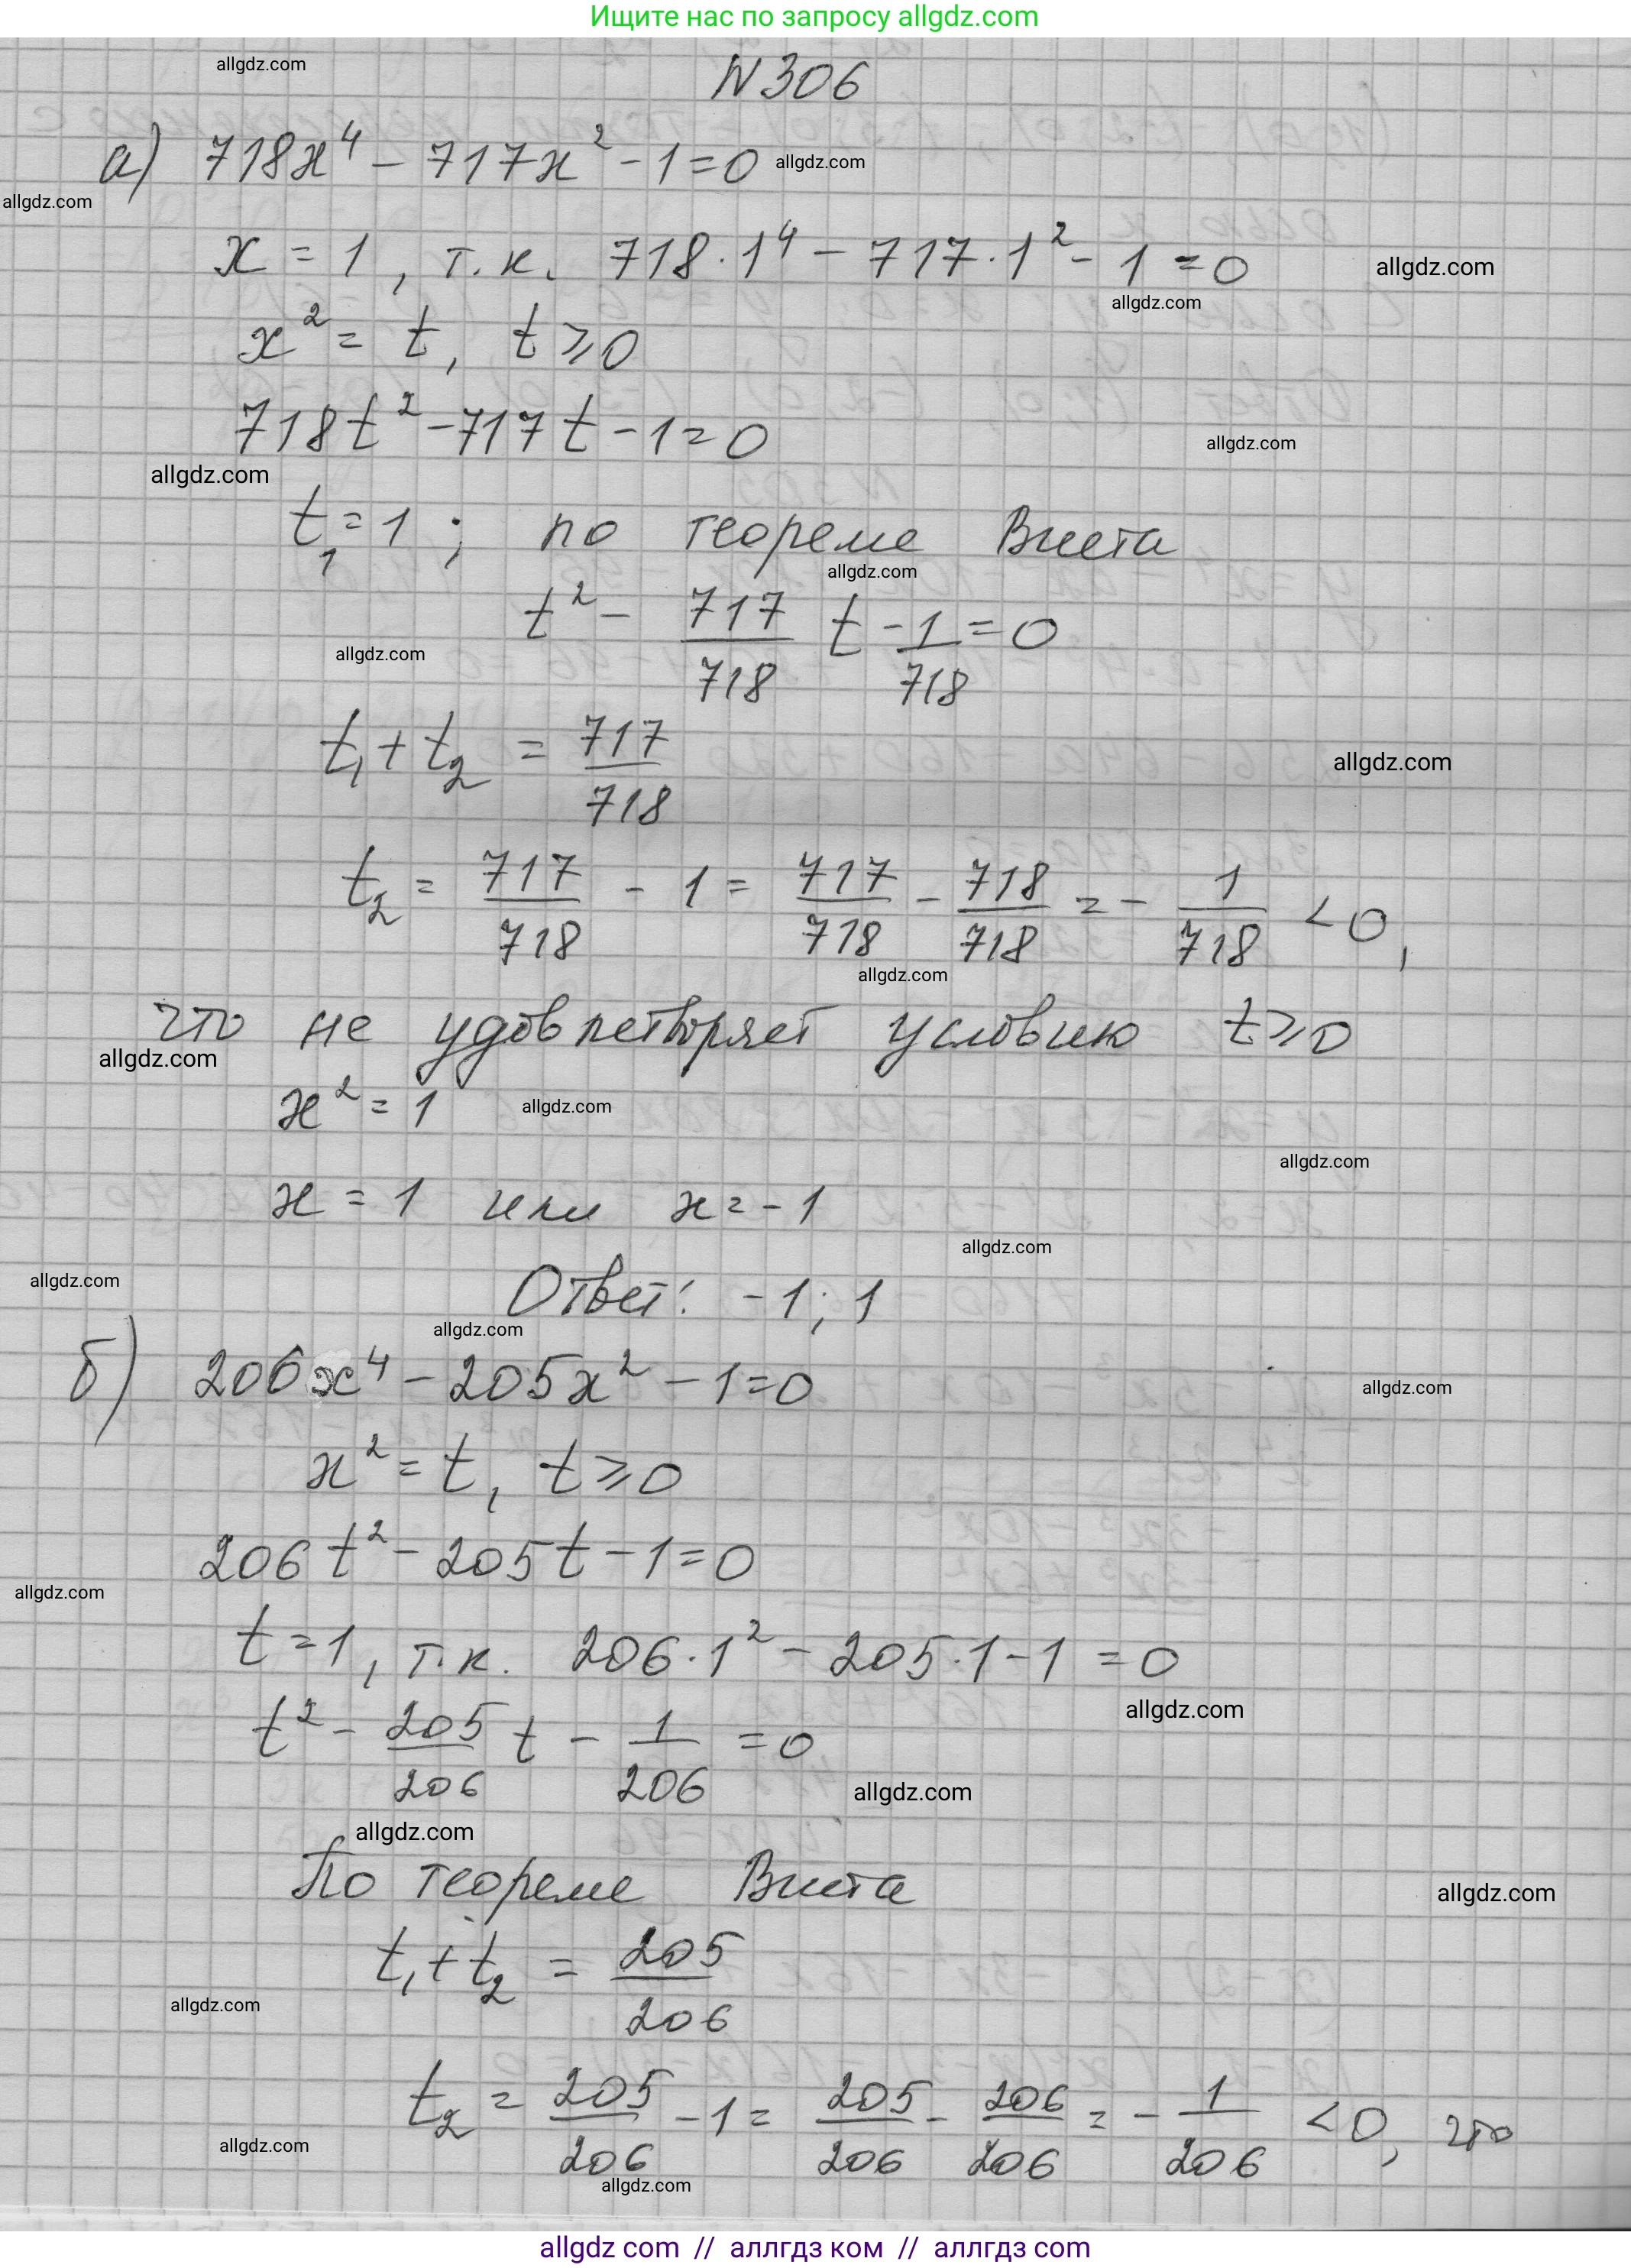 Ищите нас по запросу allgdz.com
allgdz.com
N 306
а) 718x⁴ − 717x² − 1 = 0 allgdz.com
allgdz.com
x = 1, т.к. 718·1⁴ − 717·1² − 1 = 0 allgdz.com
allgdz.com
x² = t, t ⩾ 0
718t² − 717t − 1 = 0 allgdz.com
allgdz.com
t₁ = 1; по теореме Виета
allgdz.com
t² − 717/718 t − 1/718 = 0
allgdz.com
t₁ + t₂ = 717/718 allgdz.com
t₂ = 717/718 − 1 = 717/718 − 718/718 = − 1/718 < 0,
allgdz.com
что не удовлетворяет условию t ⩾ 0
allgdz.com
x² = 1 allgdz.com
allgdz.com
x = 1 или x = −1
allgdz.com
allgdz.com
Ответ: −1; 1
allgdz.com
б) 206x⁴ − 205x² − 1 = 0 allgdz.com
x² = t, t ⩾ 0
206t² − 205t − 1 = 0
allgdz.com
t = 1, т.к. 206·1² − 205·1 − 1 = 0
allgdz.com
t² − 205/206 t − 1/206 = 0
allgdz.com
allgdz.com
По теореме Виета allgdz.com
t₁ + t₂ = 205/206
allgdz.com
t₂ = 205/206 − 1 = 205/206 − 206/206 = − 1/206 < 0, что
allgdz.com
allgdz.com
allgdz com // аллгдз ком // аллгдз com